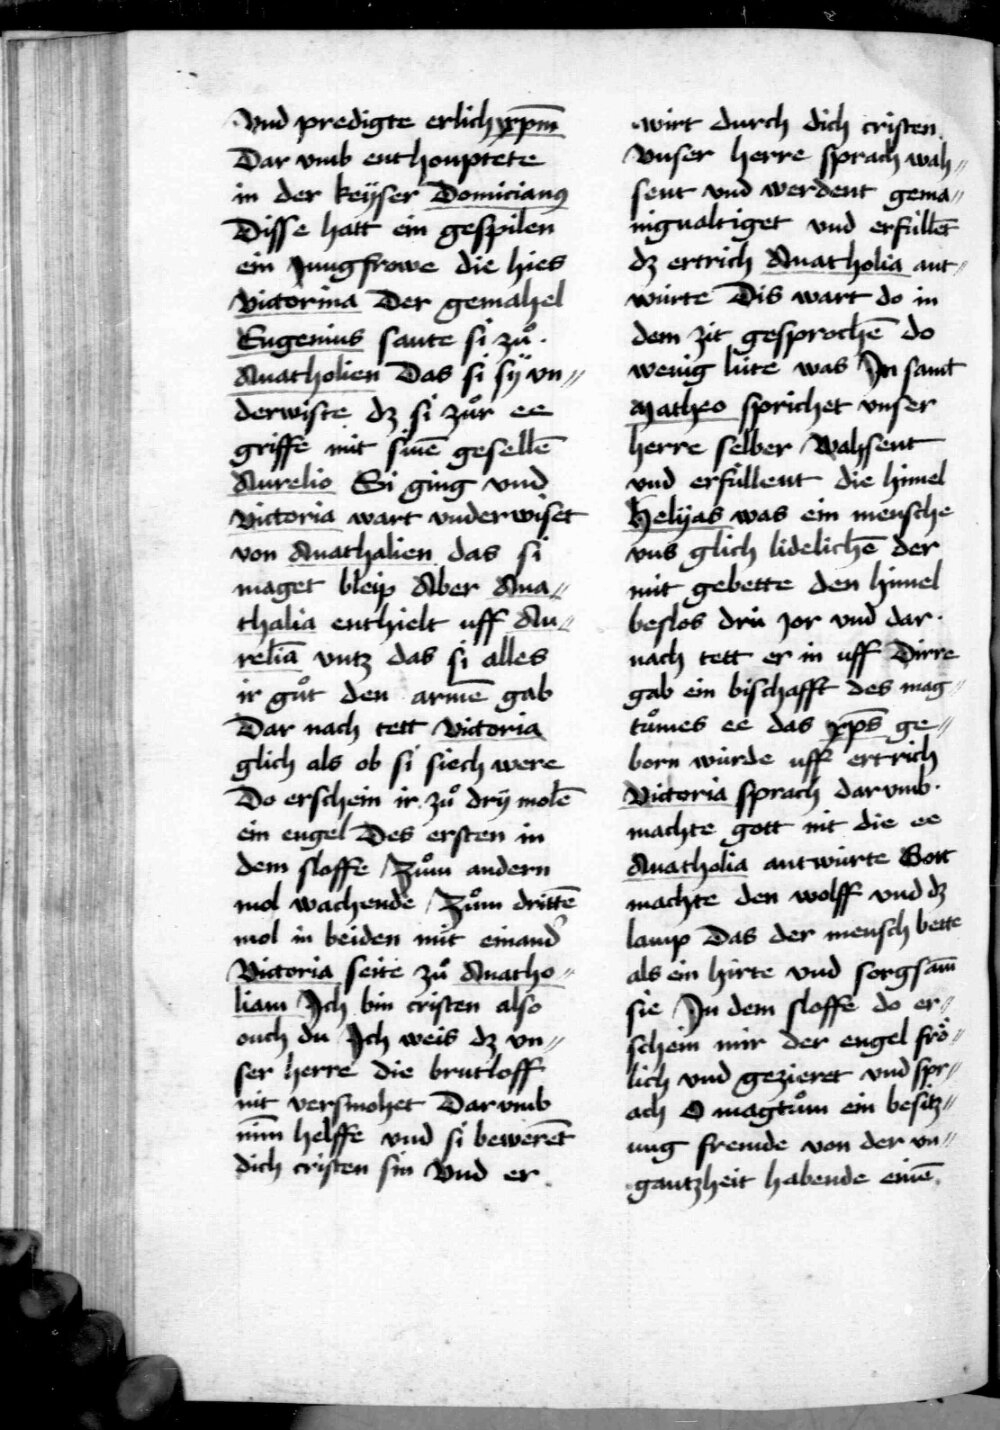 Vnd predigte erlich xpm̄
Dar vmb enthouptete
in der keÿser Domicianꝰ
Disse hatt ein gespilen
ein Jungfrowe die hies
Victorina Der gemahel
Eugenius sante si zuͦ
Anatholien Das si sÿ vn〃
derwiste dʒ si zuͦr ee
griffe mit sinē gesellē
Aurelio Si ging vnd
Victoria wart vnderwiset
von Anathalien das si
maget bleip Aber Ana〃
thalia enthielt uff Au〃
reliā vntz das si alles
ir guͦt den armē gab
Dar nach tett Victoria
glich als ob si siech were
Do erschein ir zuͦ drÿ molē
ein engel Des ersten in
dem sloffe Zuͦm andern
mol wachende Zuͦm drittē
mol in beiden mit einand'
Victoria seite zuͦ Anatho〃
liam Ich bin cristen also
ouch du Ich weis dʒ vn〃
ser herre die brutloff
nit versmohet Dar vmb
nim̄ helffe vnd si bewerēt
dich cristen sin Vnd er
wirt durch dich cristen
Vnser herre sprach wah〃
sent vnd werdent gema〃
nigualtiget vnd erfüllēt
dʒ ertrich Anatholia ant〃
würte Dis wart do in
dem zit gesprochē do
wenig lüte was In sant
Matheo sprichet vnser
herre selber Wahsent
vnd erfüllent die himel
Helÿas was ein mensche
vns glich lidelichē der
mit gebette den himel
beslos drü jor vnd dar
nach tett er in uff Dirre
gab ein bischafft des mag〃
tuͦmes ee das xp̄s ge〃
born würde uff ertrich
Victoria sprach dar vmb
machte gott nit die ee
Anatholia antwürte Gott
machte den wolff vnd dʒ
lamp Das der mensch hette
als ein hirte vnd sorgsam
sie In dem sloffe do er〃
schein mir der engel frö〃
lich vnd gezieret vnd spr〃
ach O magtuͦm ein besitz〃
ung fremde von der vn〃
gantzheit habende einē